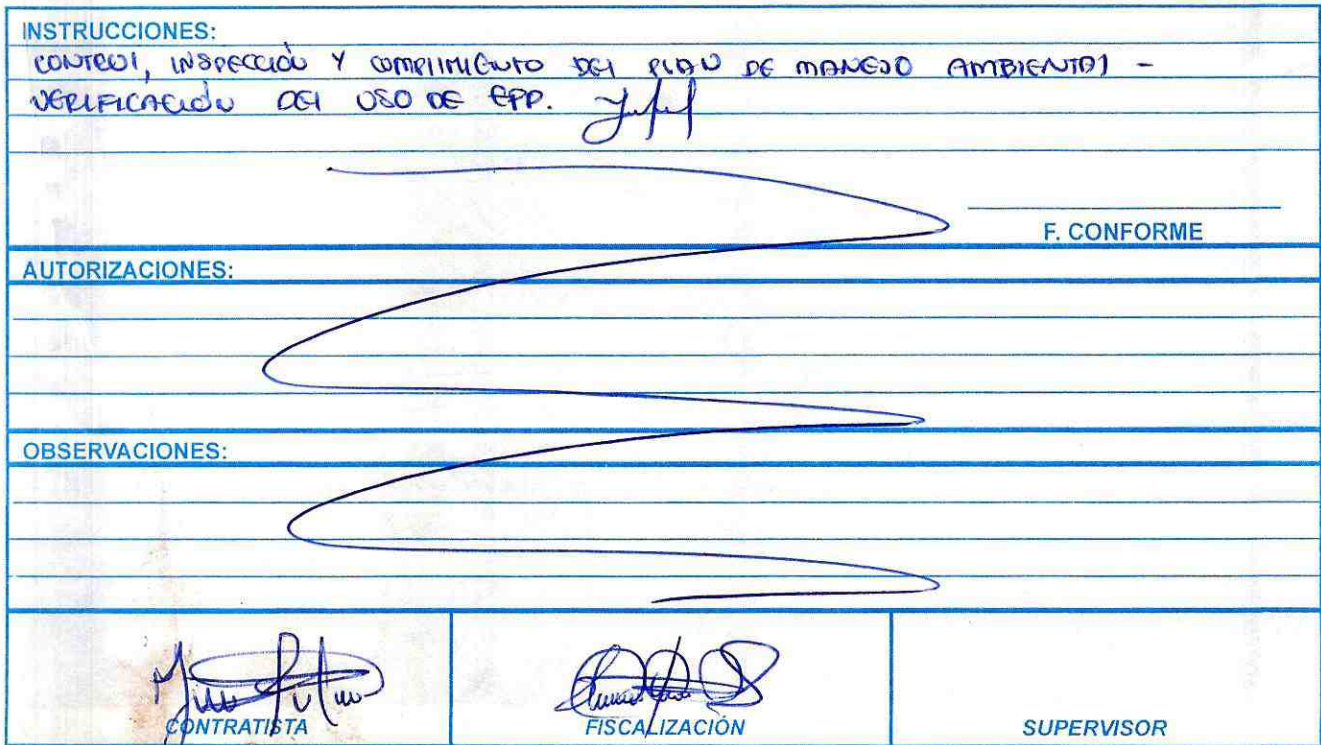 INSTRUCCIONES:
CONTROl, INSPECCIÓN Y CUMPlIMIENTO DEl PlAN DE MANEJO AMBIENTAl -
VERIFICACIÓN DEl USO DE EPP.
F. CONFORME
AUTORIZACIONES:
OBSERVACIONES:
CONTRATISTA FISCALIZACIÓN SUPERVISOR